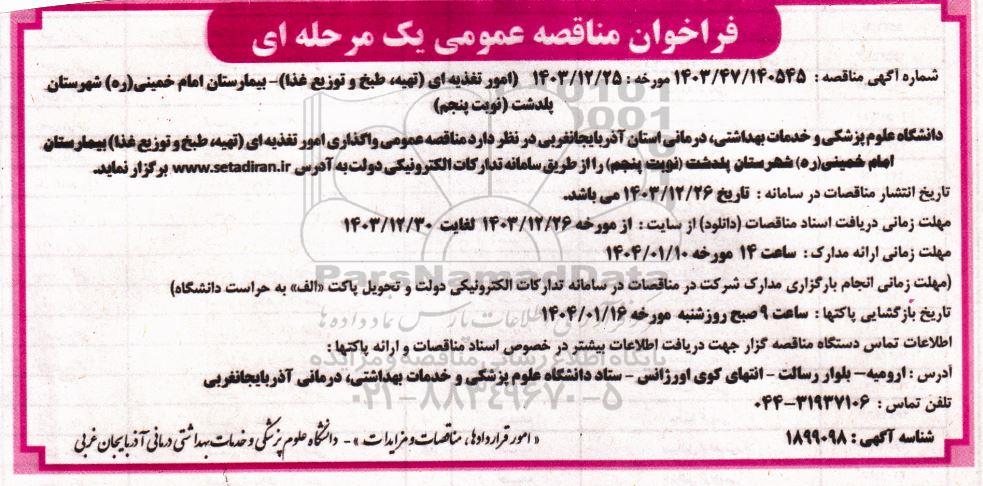 فراخوان مناقصه عمومی یک مرحله ای
شماره آگهی مناقصه : ۱۴۰۳/۴۷/۱۴۰۵۴۵ مورخه : ۱۴۰۳/۱۲/۲۵ (امور تغذیه ای (تهیه، طبخ و توزیع غذا)– بیمارستان امام خمینی(ره) شهرستان
پلدشت (نوبت پنجم)
دانشگاه علوم پزشکی و خدمات بهداشتی، درمانی استان آذربایجانغربی در نظر دارد مناقصه عمومی واگذاری امور تغذیه ای (تهیه، طبخ و توزیع غذا) بیمارستان
امام خمینی(ره) شهرستان پلدشت (نوبت پنجم) را از طریق سامانه تدارکات الکترونیکی دولت به آدرس www.setadiran.ir برگزار نماید.
تاریخ انتشار مناقصات در سامانه : تاریخ ۱۴۰۳/۱۲/۲۶ می باشد.
مهلت زمانی دریافت اسناد مناقصات (دانلود) از سایت : از مورخه ۱۴۰۳/۱۲/۲۶ لغایت ۱۴۰۳/۱۲/۳۰
مهلت زمانی ارائه مدارک : ساعت ۱۴ مورخه ۱۴۰۴/۰۱/۱۰
(مهلت زمانی انجام بارگزاری مدارک شرکت در مناقصات در سامانه تدارکات الکترونیکی دولت و تحویل پاکت «الف» به حراست دانشگاه)
تاریخ بازگشایی پاکتها : ساعت ۹ صبح روزشنبه مورخه ۱۴۰۴/۰۱/۱۶
اطلاعات تماس دستگاه مناقصه گزار جهت دریافت اطلاعات بیشتر در خصوص اسناد مناقصات و ارائه پاکتها :
آدرس : ارومیه– بلوار رسالت – انتهای کوی اورژانس – ستاد دانشگاه علوم پزشکی و خدمات بهداشتی، درمانی آذربایجانغربی
تلفن تماس : ۳۱۹۳۷۱۰۶–۰۴۴
شناسه آگهی : ۱۸۹۹۰۹۸
« امور قراردادها، مناقصات و مزایدات »– دانشگاه علوم پزشکی و خدمات بهداشتی درمانی آذربایجان غربی
ParsNamadData
مرکز فرآوری اطلاعات پارس نماد داده ها
پایگاه اطلاع رسانی مناقصه و مزایده
۰۲۱–۸۸۳۴۹۶۷۰–۵